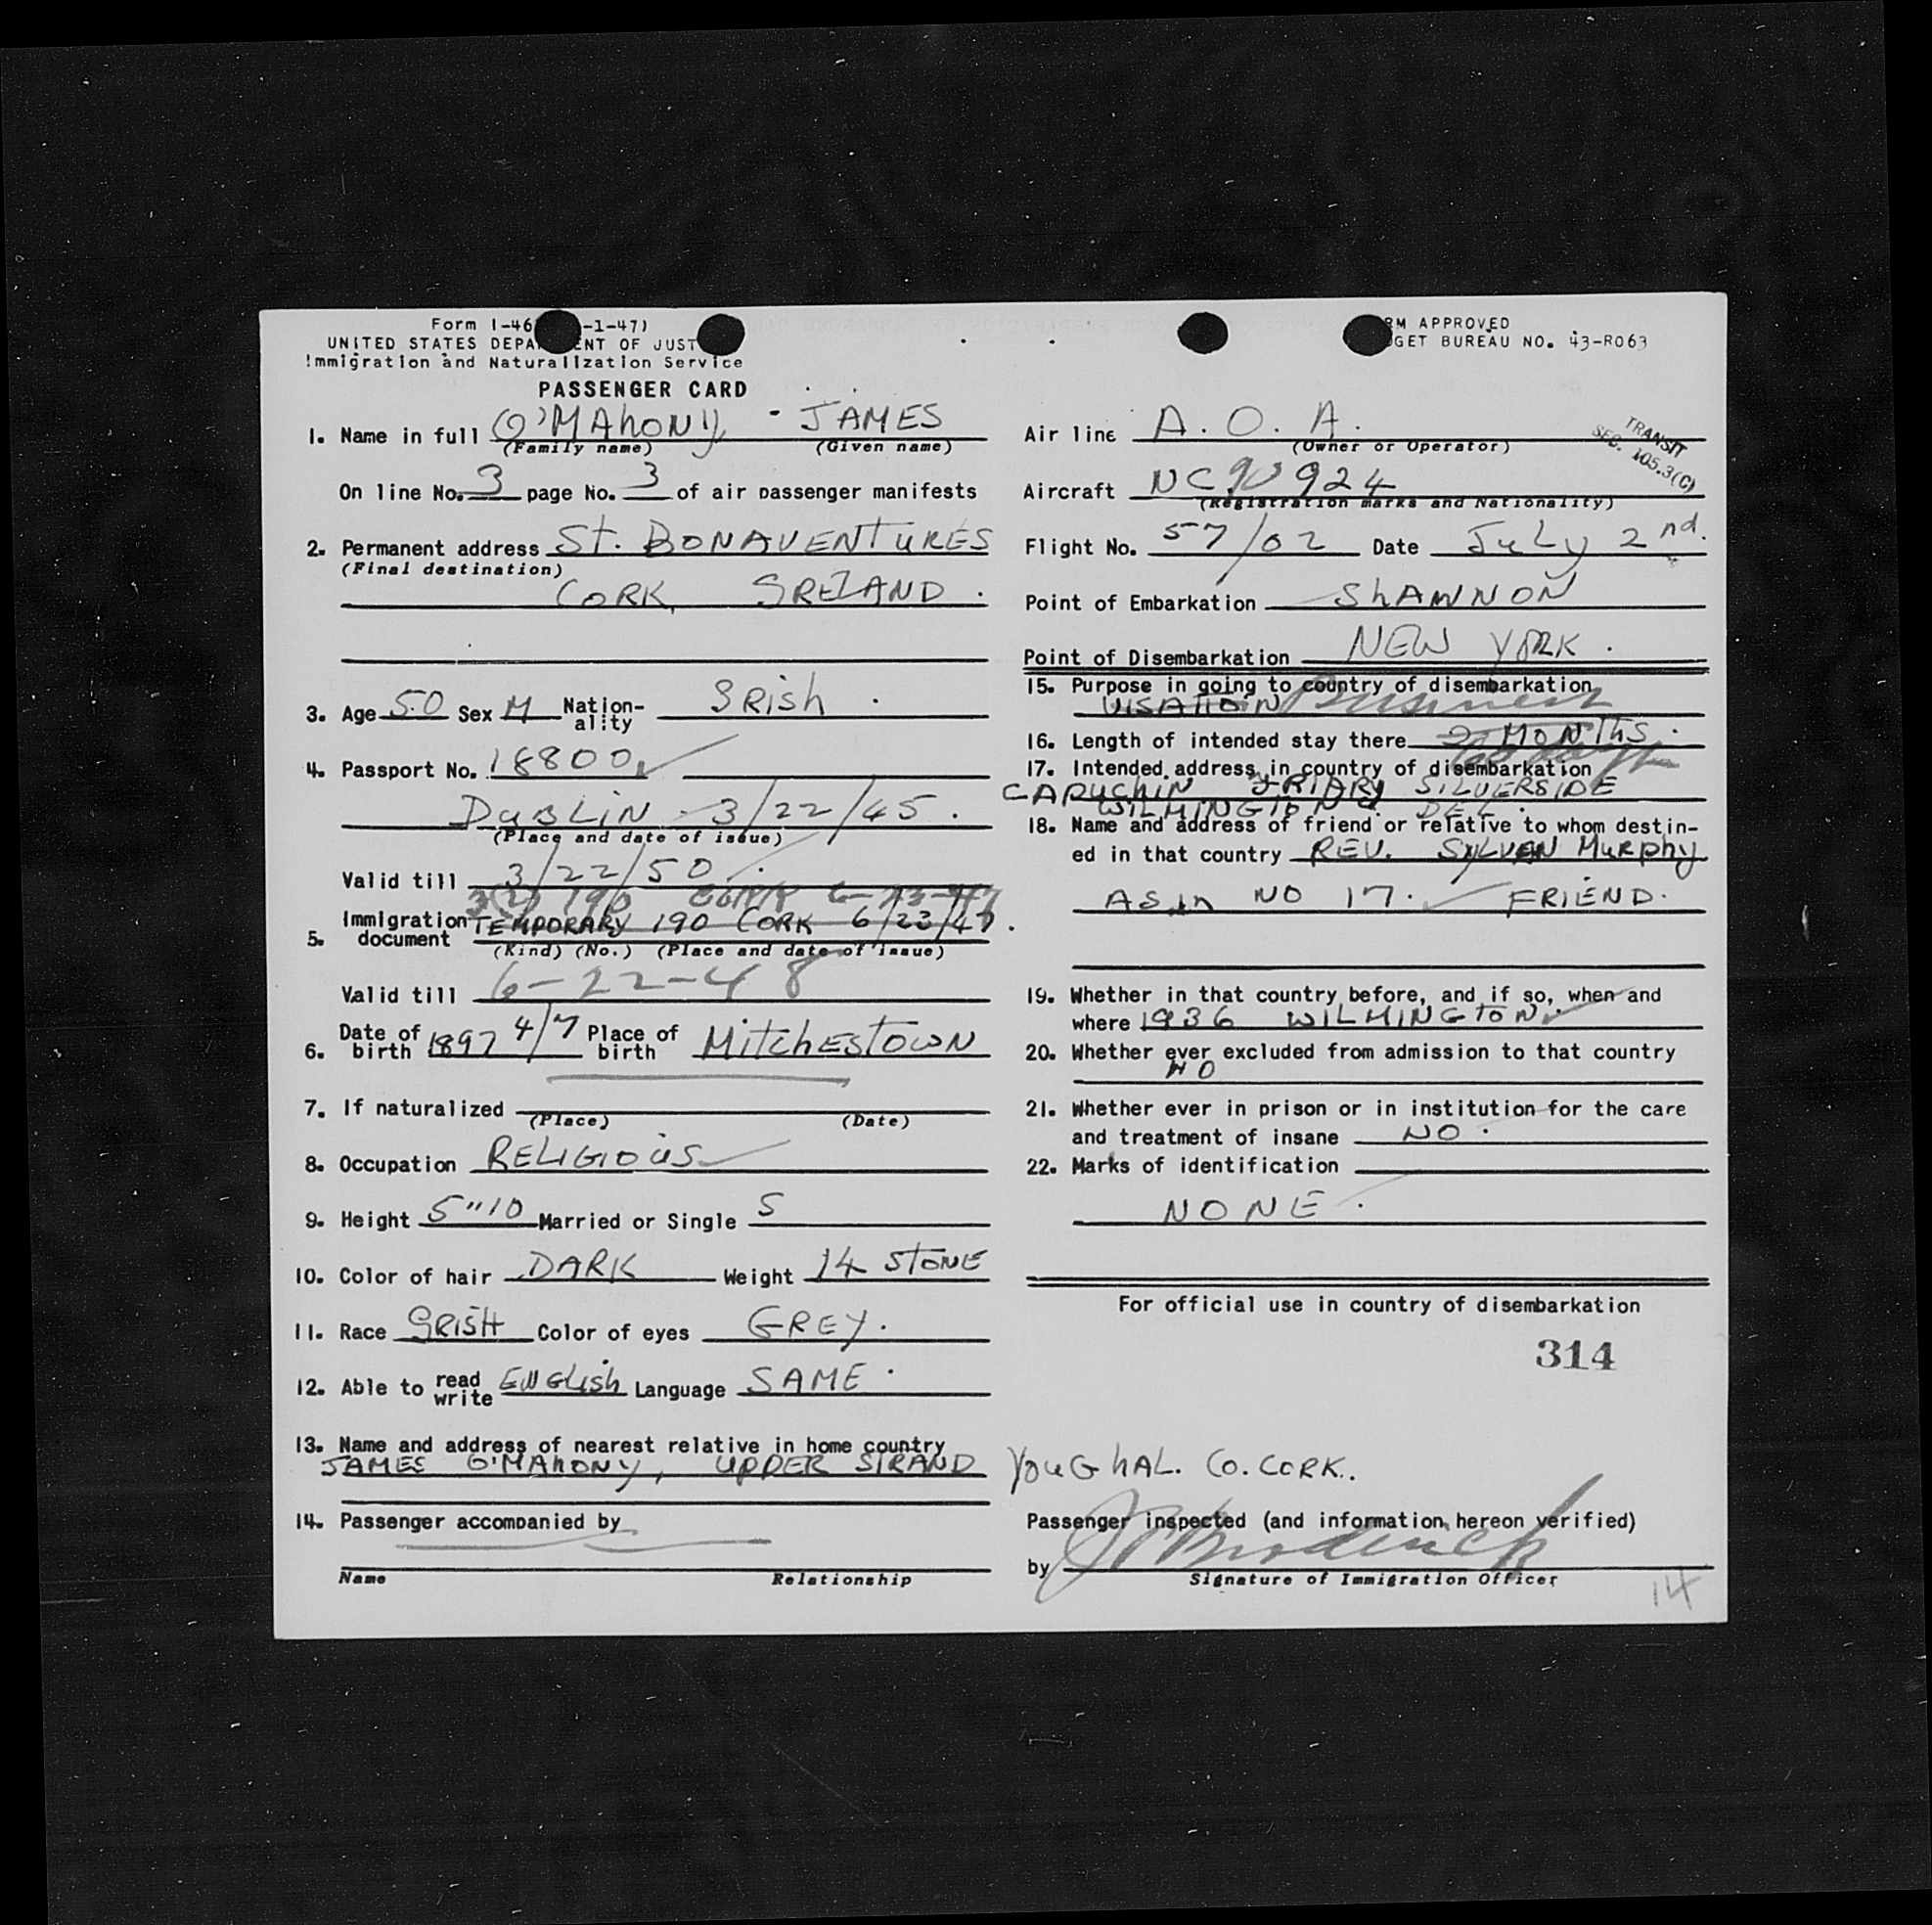 Form I-46 -1-47)
UNITED STATES DEPA ENT OF JUST
Immigration and Naturalization Service
PASSENGER CARD
1. Name in full O'MAhONY - JAMES
(Family name) (Given name)
On line No. 3 page No. 3 of air passenger manifests
2. Permanent address St. BONAVENTURES
(Final destination)
CORK, IRELAND.
3. Age 50 Sex M Nation-ality IRish.
4. Passport No. 18800
DUBLIN - 3/22/45.
(Place and date of issue)
Valid till 3/22/50.
3(2) 190 CORK 6-23-47
5. Immigration document TEMPORARY 190 CORK 6/23/47.
(Kind) (No.) (Place and date of issue)
Valid till 6-22-48
6. Date of birth 1897 4/7 Place of birth MitchESTOWN
7. If naturalized
(Place) (Date)
8. Occupation RELIGIOUS
9. Height 5"10 Married or Single S
10. Color of hair DARK Weight 14 STONE
11. Race IRISH Color of eyes GREY.
12. Able to read write ENGLish Language SAME.
13. Name and address of nearest relative in home country
JAMES O'MAHONY, UPPER STRAND YOUGHAL. CO. CORK.
14. Passenger accompanied by
Name Relationship
RM APPROVED
GET BUREAU NO. 43-R063
Air line A. O. A.
(Owner or Operator)
TRANSIT
SEC. 105.3(C)
Aircraft NC90924
(Registration marks and Nationality)
Flight No. 57/02 Date July 2nd.
Point of Embarkation ShANNON
Point of Disembarkation NEW YORK.
15. Purpose in going to country of disembarkation
VISATION Business
16. Length of intended stay there 2 MONThS.
17. Intended address in country of disembarkation
CAPUChIN FRIARY SILVERSIDE
WILMINGTON DEL.
18. Name and address of friend or relative to whom destin-
ed in that country REV. SYLVEN MURPhy
AS IN NO 17. FRIEND.
19. Whether in that country before, and if so, when and
where 1936 WILMINGTON.
20. Whether ever excluded from admission to that country
NO
21. Whether ever in prison or in institution for the care
and treatment of insane NO.
22. Marks of identification
NONE.
For official use in country of disembarkation
314
Passenger inspected (and information hereon verified)
by J P Broderick
Signature of Immigration Officer
14